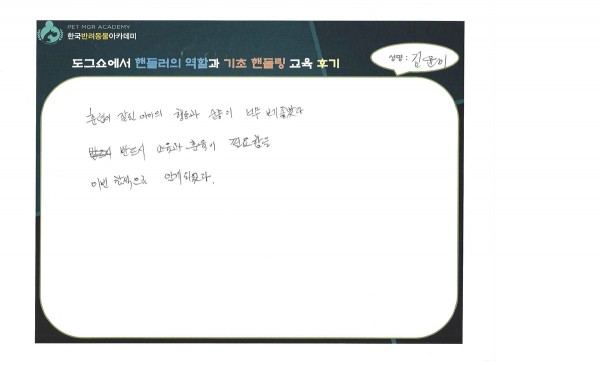 PET MGR ACADEMY
한국반려동물아카데미
도그쇼에서 핸들러의 역할과 기초 핸들링 교육 후기
성명 : 김윤미
훈련이 잘된 아이의 행동과 이 너무 보기좋았다
반드시 교육과 훈육이 필요함을
이번 으로 알게 되었다.